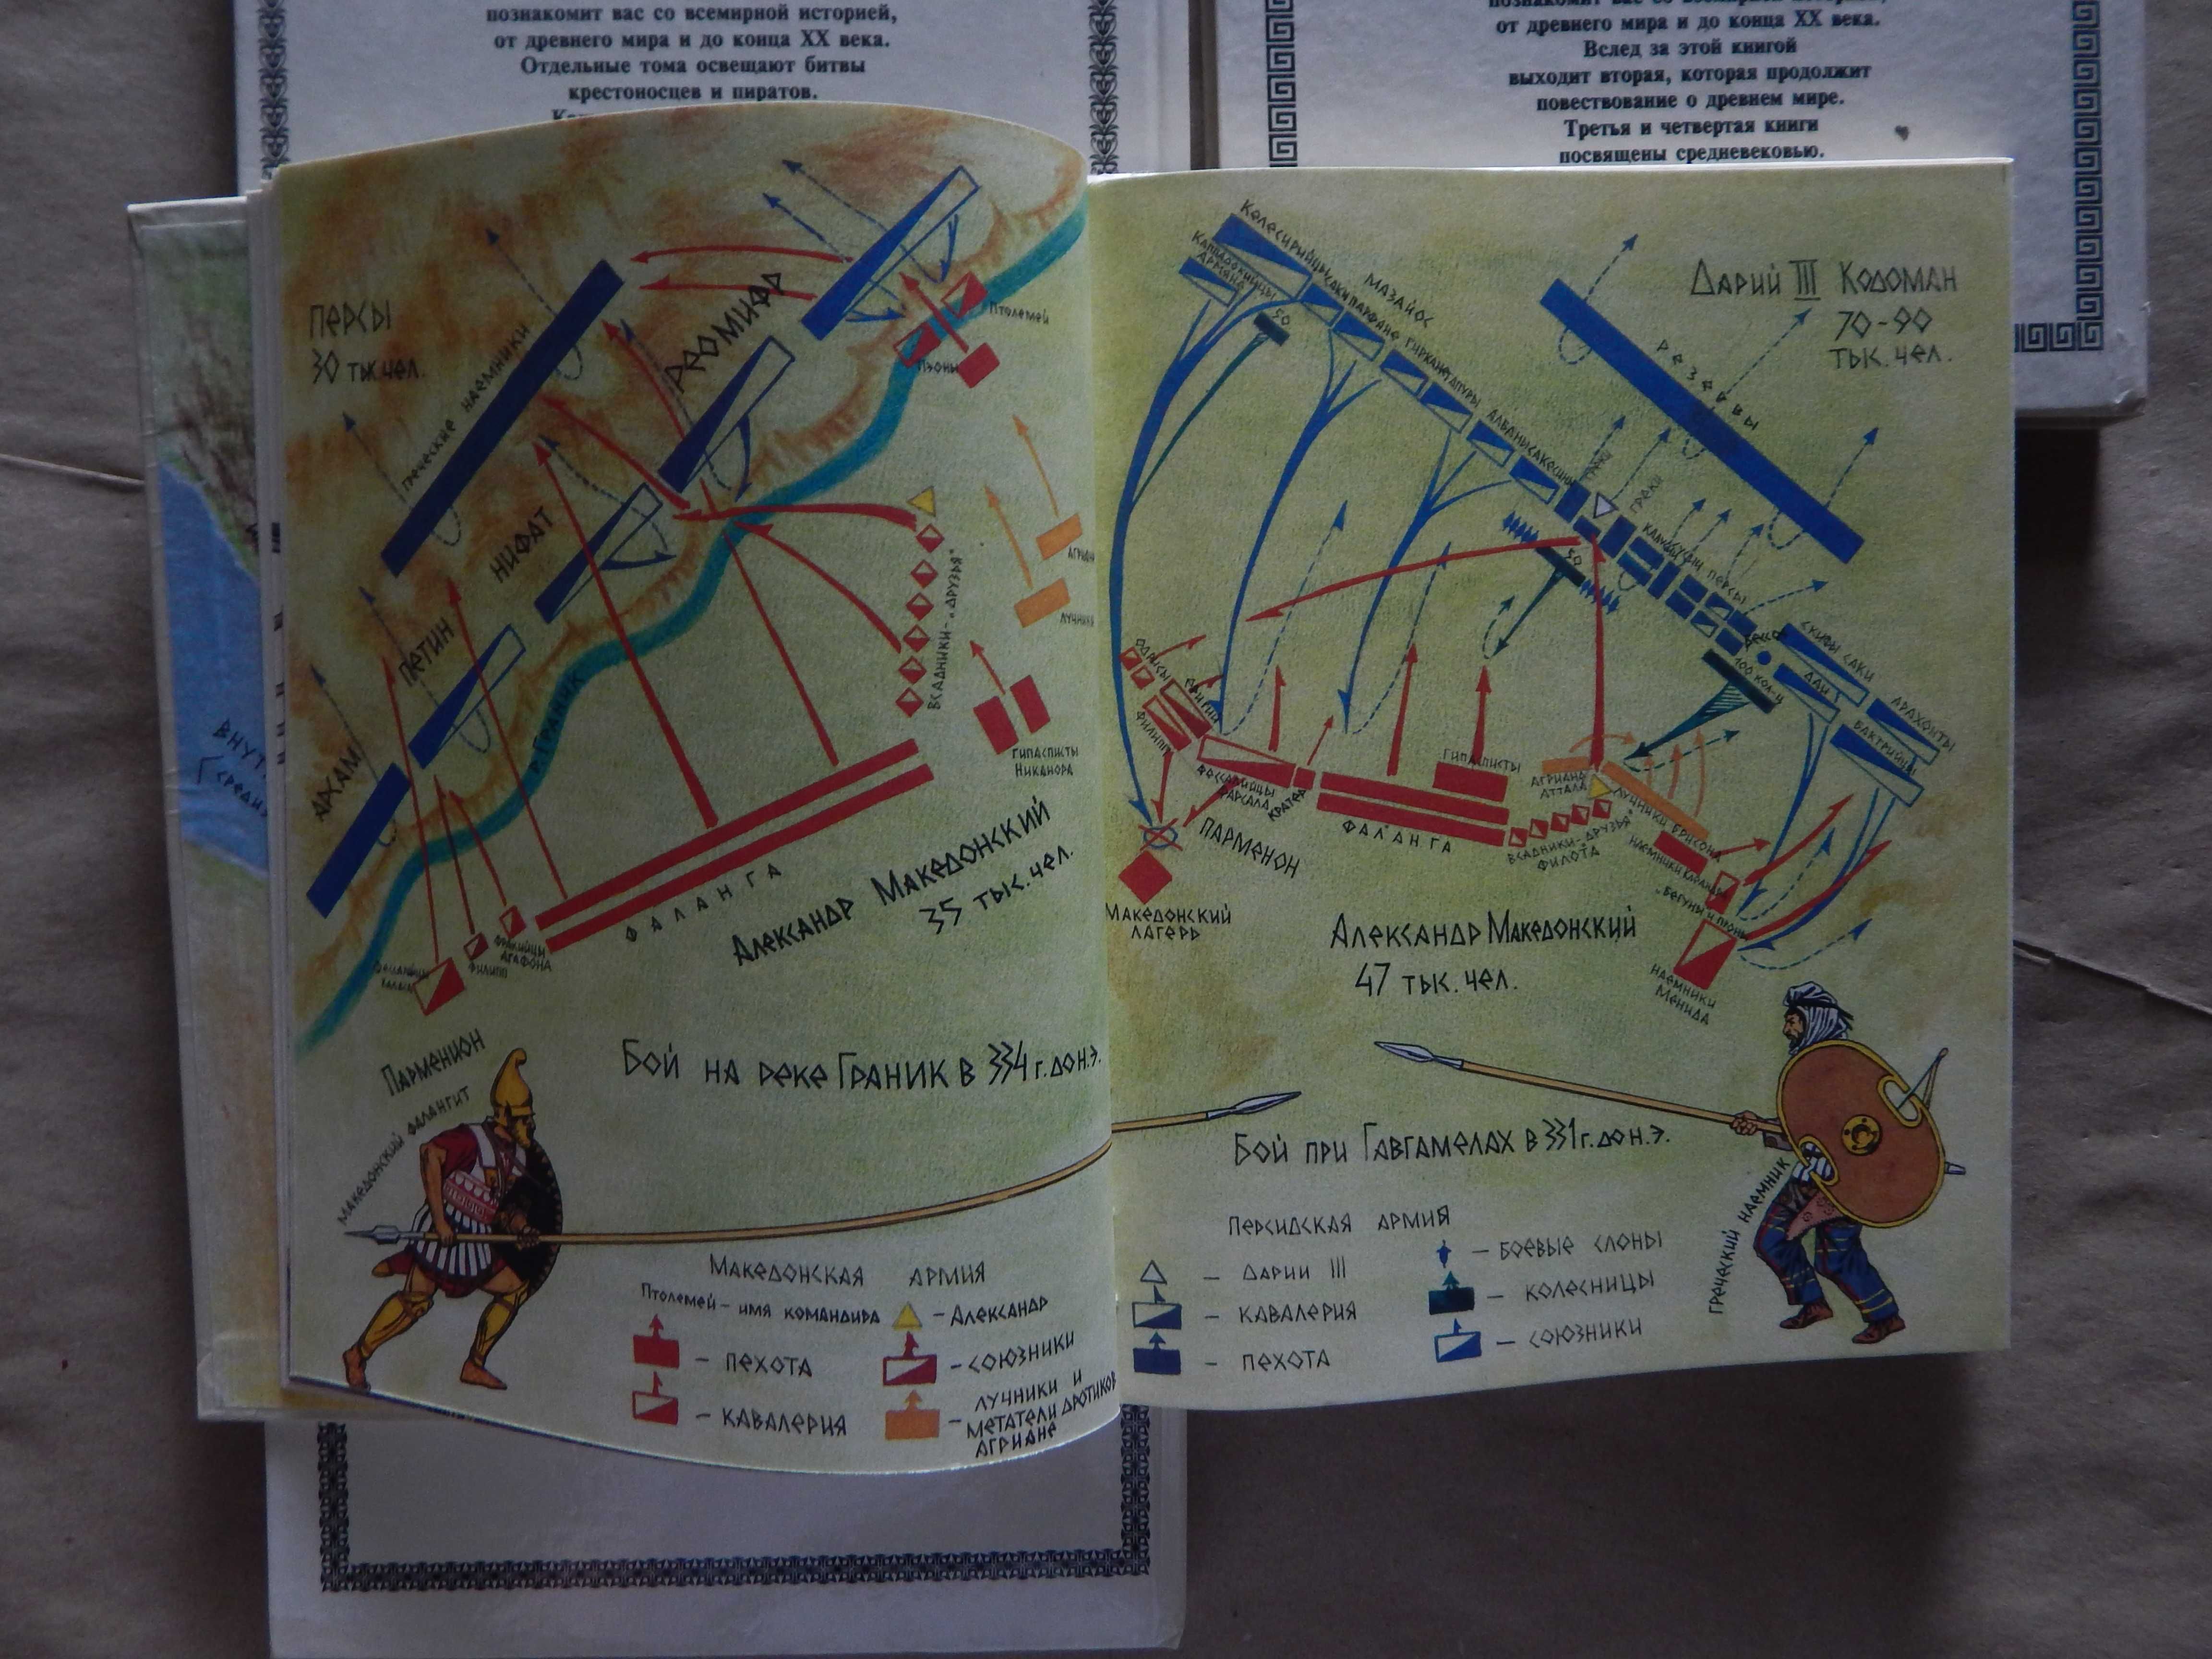 познакомит вас со всемирной историей,
от древнего мира и до конца XX века.
Отдельные тома освещают битвы
крестоносцев и пиратов.
от древнего мира и до конца XX века.
Вслед за этой книгой
выходит вторая, которая продолжит
повествование о древнем мире.
Третья и четвертая книги
посвящены средневековью.
Персы
30 тыс. чел.
Греческие наемники
Аромифр
Нифат
Петин
Архам
р. Граник
Птолемей
Пэоны
Всадники-„друзья“
Агриане
Лучники
Гипасписты
Никанора
Фаланга
Александр Македонский
35 тыс. чел.
Филипп
Фракийцы
Агафона
Парменион
Македонский фалангит
Бой на реке Граник в 334 г. до н.э.
Македонская армия
Птолемей – имя командира
– Александр
– пехота
– союзники
– кавалерия
– лучники и
метатели дротиков
агриане
Внут
Среди
Дарий III Кодоман
70-90
тыс. чел.
Резервы
Колесирийцы
Каппадокийцы
Армяне
Мазайос
саки
парфяне
гиркане
тапуры
албани
сакесины
50
Греки
Греки
50
персы
Бессос
100 кол-ц
Скифы саки
Даи
Арахоты
Бактрийцы
Одрисы
Филипп
Фессалийцы
Фарсала
Кратер
Парменон
Македонский
лагерь
Фаланга
Гипасписты
Агриане
Аттала
Лучники Брисона
Всадники-„друзья“
Филота
Наемники Клеандра
„Бегуны“ и пэоны
Наемники
Менида
Александр Македонский
47 тыс. чел.
Бой при Гавгамелах в 331 г. до н.э.
Греческий наемник
Персидская армия
– Дарий III
– кавалерия
– пехота
– боевые слоны
– колесницы
– союзники